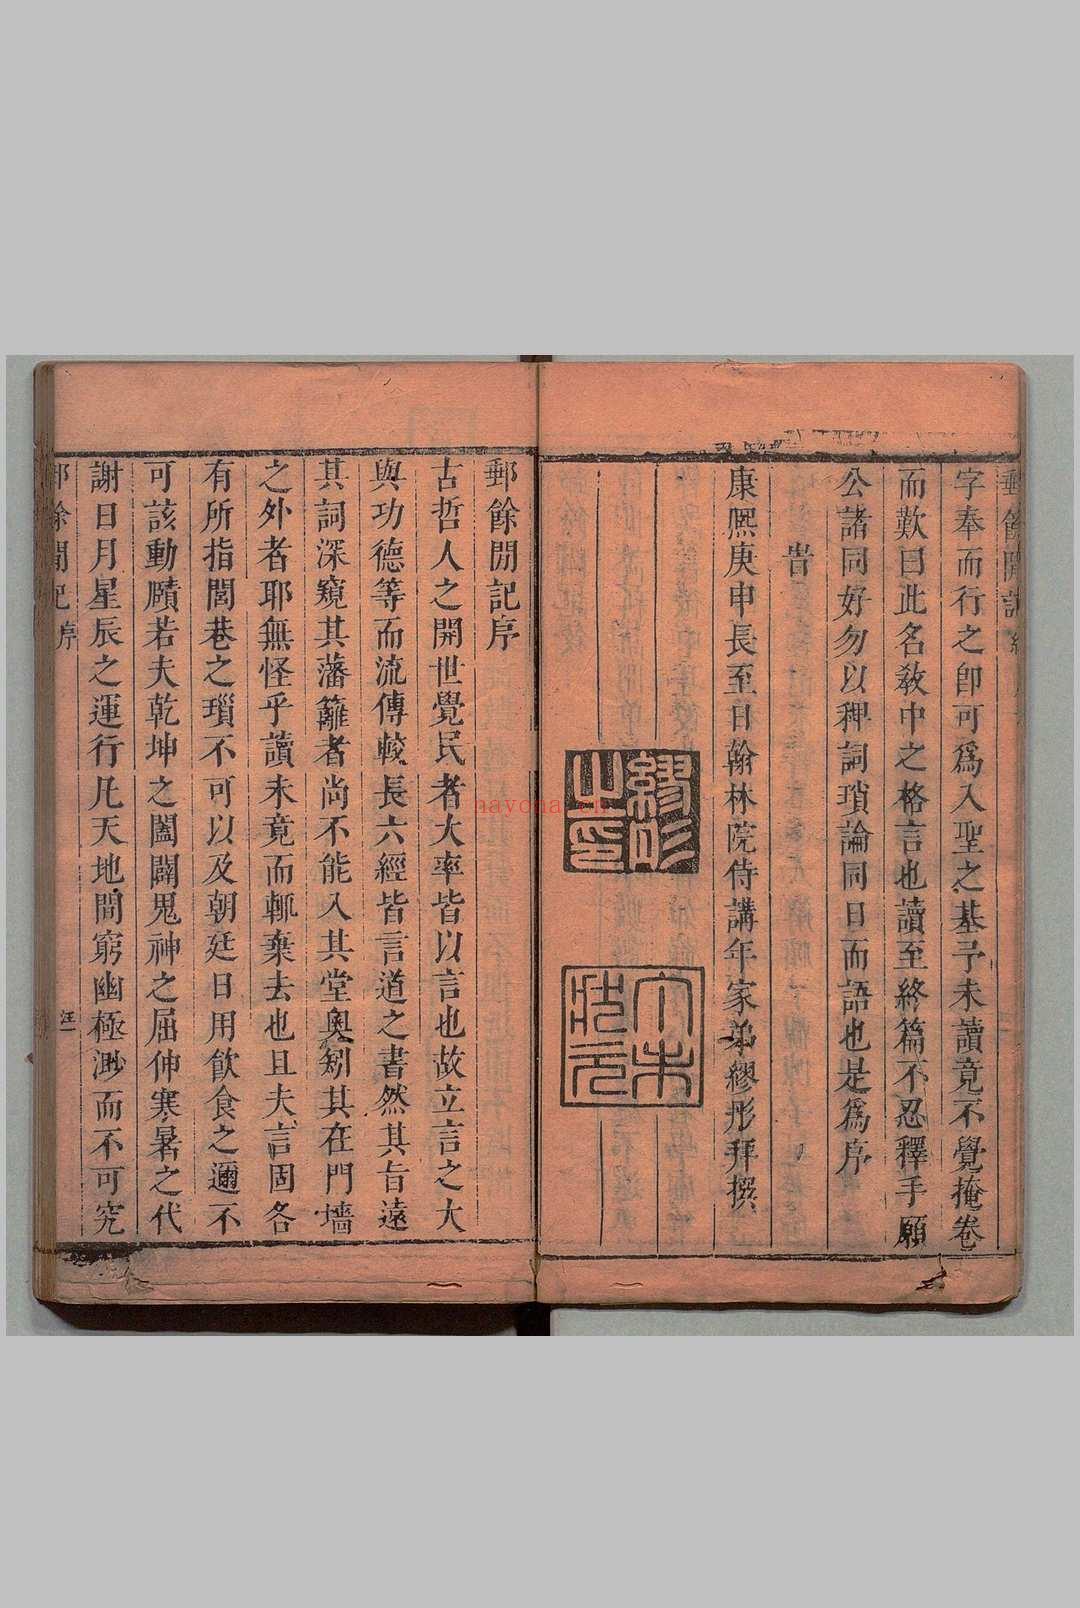 郵餘閒記
字奉而行之卽可爲入聖之基予未讀竟不覺掩卷
而歎曰此名敎中之格言也讀至終篇不忍釋手願
公諸同好勿以稗詞瑣論同日而語也是爲序
旹
康熈庚申長至日翰林院侍講年家弟繆彤拜撰
繆彤之印
丁未狀元
郵餘閒記序
古哲人之開世覺民者大率皆以言也故立言之大
與功德等而流傳較長六經皆言道之書然其旨遠
其詞深窺其藩籬者尚不能入其堂奧矧其在門墻
之外者耶無怪乎讀未竟而輒棄去也且夫言固各
有所指閭巷之瑣不可以及朝廷日用飲食之邇不
可該動賾若夫乾坤之闔闢鬼神之屈伸寒暑之代
謝日月星辰之運行凡天地間窮幽極渺而不可究
郵餘閒記 序 汪 一
nayona.cn